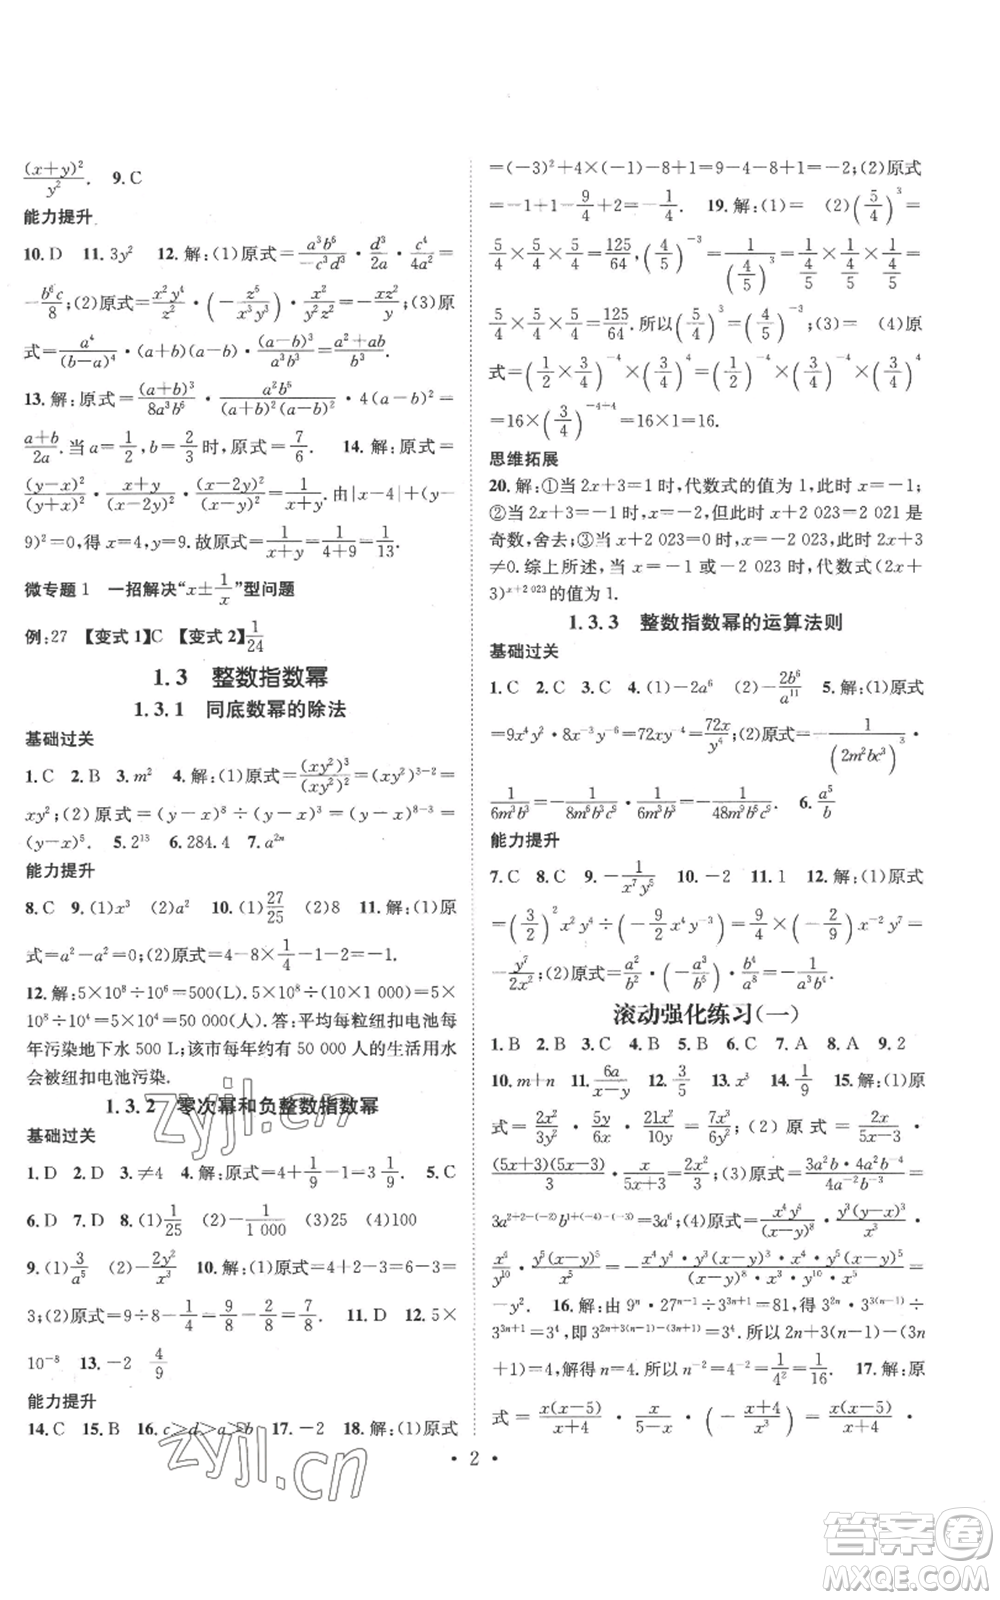 (x+y)²/y². 9.C
能力提升
10.D 11.3y² 12.解:(1)原式=a³b⁶/(-c³d³)·d³/2a·c⁴/4a²=
-b⁶c/8;(2)原式=x²y⁴/z²·(-z⁶/x³y³)·x²/y²z²=-xz²/y;(3)原
式=a⁴/(b-a)⁴·(a+b)(a-b)·(a-b)³/a³b³=(a²+ab)/b³.
13.解:原式=(a+b)³/8a³b⁶·a²b⁶/((a+b)²(a-b)²)·4(a-b)²=
(a+b)/2a.当a=1/2,b=2/3时,原式=7/6. 14.解:原式=
(y-x)²/(y+x)²·(x+y)/(x-2y)²·(x-2y)²/(y-x)²=1/(x+y).由|x-4|+(y-
9)²=0,得x=4,y=9.故原式=1/(x+y)=1/(4+9)=1/13.
微专题1 一招解决“x±1/x”型问题
例:27 【变式1】C 【变式2】1/24
1.3 整数指数幂
1.3.1 同底数幂的除法
基础过关
1.C 2.B 3.m² 4.解:(1)原式=(xy²)³/(xy²)²=(xy²)³⁻²=
xy²;(2)原式=(y-x)⁸÷(y-x)³=(y-x)⁸⁻³=
(y-x)⁵. 5.2¹³ 6.284.4 7.a²ⁿ
能力提升
8.C 9.(1)x³ (2)a² 10.(1)27/25 (2)8 11.解:(1)原
式=a²-a²=0;(2)原式=4-8×1/4-1-2=-1.
12.解:5×10⁸÷10⁶=500(L).5×10⁸÷10⁴=5×
10⁸÷10⁴=5×10⁴=50 000(人).答:平均每粒纽扣电池每
年污染地下水500 L;该市每年约有50 000人的生活用水
会被纽扣电池污染.
1.3.2 零次幂和负整数指数幂
基础过关
1.D 2.D 3.≠4 4.解:原式=4+1/9-1=3 1/9. 5.C
6.D 7.D 8.(1)1/25 (2)-1/1 000 (3)25 (4)100
9.(1)3/a⁵ (2)-2y²/x³ 10.解:(1)原式=4+2-3=6-3=
3;(2)原式=9÷8-1/4=9/8-2/8=7/8. 11.D 12.5×
10⁻⁸ 13.-2 4/9
能力提升
14.C 15.B 16.c>d>a>b 17.-2 18.解:(1)原式
=(-3)²+4×(-1)-8+1=9-4-8+1=-2;(2)原式
=-1+1-9/4+2=-1/4. 19.解:(1)= (2)(5/4)³=
5/4×5/4×5/4=125/64,(4/5)⁻³=1/(4/5)³=
5/4×5/4×5/4=125/64.所以(5/4)³=(4/5)⁻³;(3)= (4)原
式=(1/2×3/4)⁻⁴×(3/4)⁴=(1/2)⁻⁴×(3/4)⁻⁴×(3/4)⁴
=16×(3/4)⁻⁴⁺⁴=16×1=16.
思维拓展
20.解:①当2x+3=1时,代数式的值为1,此时x=-1;
②当2x+3=-1时,x=-2,但此时x+2 023=2 021是
奇数,舍去;③当x+2 023=0时,x=-2 023,此时2x+3
≠0.综上所述,当x=-1或-2 023时,代数式(2x+
3)ˣ⁺²⁰²³的值为1.
1.3.3 整数指数幂的运算法则
基础过关
1.C 2.C 3.C 4.(1)-2a⁶ (2)-2b⁶/a¹¹ 5.解:(1)原式
=9x⁴y²·8x⁻³y⁻⁶=72xy⁻⁴=72x/y⁴;(2)原式=-1/(2m²bc³)³·
1/6m³b³=-1/8m⁶b³c⁹·1/6m³b³=-1/48m⁹b⁶c⁹. 6.a⁵/b
能力提升
7.C 8.C 9.-1/x⁷y⁵ 10.-2 11.1 12.解:(1)原式
=(3/2)²x²y³÷(-9/2x⁴y⁻⁴)=9/4×(-2/9)x⁻²y⁷=
-y⁷/2x²;(2)原式=a²/b²·b²/a³·b⁴/a²=b⁴/a³.
滚动强化练习(一)
1.B 2.B 3.C 4.C 5.C 6.C 7.A 8.A 9.2
10.m+n 11.6a/(x-y) 12.3/5 13.x³ 14.1/9 15.解:(1)原
式=2x²/3y²·5y/6x·21x²/10y=7x³/6y²;(2)原式=2x/(5x-3)·
(5x+3)(5x-3)/3·x/(5x+3)=2x²/3;(3)原式=3a²b·4a²b⁻⁴/4a⁻²b⁻³=
3a²⁺²⁻⁽⁻²⁾b¹⁺⁽⁻⁴⁾⁻⁽⁻³⁾=3a⁶;(4)原式=x⁴y⁶/(x-y)⁸·y⁶(y-x)³/x³·
x⁶/y¹⁰·y²(x-y)⁵/x⁵=-x⁴y⁶·y⁶(x-y)³·x⁶·y²(x-y)⁵/((x-y)⁸·x³·y¹⁰·x⁵)=
-y². 16.解:由9ⁿ·27ⁿ⁻¹÷3³ⁿ⁺¹=81,得3²ⁿ·3³⁽ⁿ⁻¹⁾÷
3³ⁿ⁺¹=3⁴,即3²ⁿ⁺³⁽ⁿ⁻¹⁾⁻⁽³ⁿ⁺¹⁾=3⁴.所以2n+3(n-1)-(3n
+1)=4,解得n=4.所以n⁻²=4⁻²=1/4²=1/16. 17.解:原
式=x(x-5)/(x+4)·x/(x-5)·(-(x+4)/x²)·
·2·
zyjl.cn
zyjl.cn
答案圈
MXQE.COM